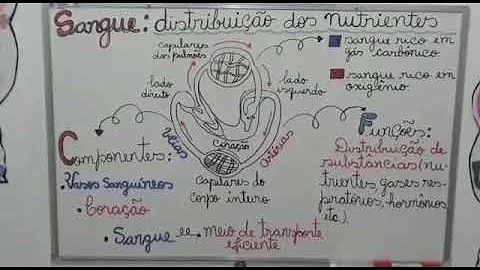 Sangue: distribuição dos nutrientes
capilares
dos pulmões
sangue rico em
gás carbônico
sangue rico em
oxigênio
lado
direito
lado
esquerdo
Coração
veias
artérias
Capilares do
corpo inteiro
Componentes:
Vasos Sanguíneos
Coração
Sangue → meio de transporte
eficiente
Funções:
Distribuição de
substâncias (nu-
trientes, gases res-
piratórios, hormônios
etc.)